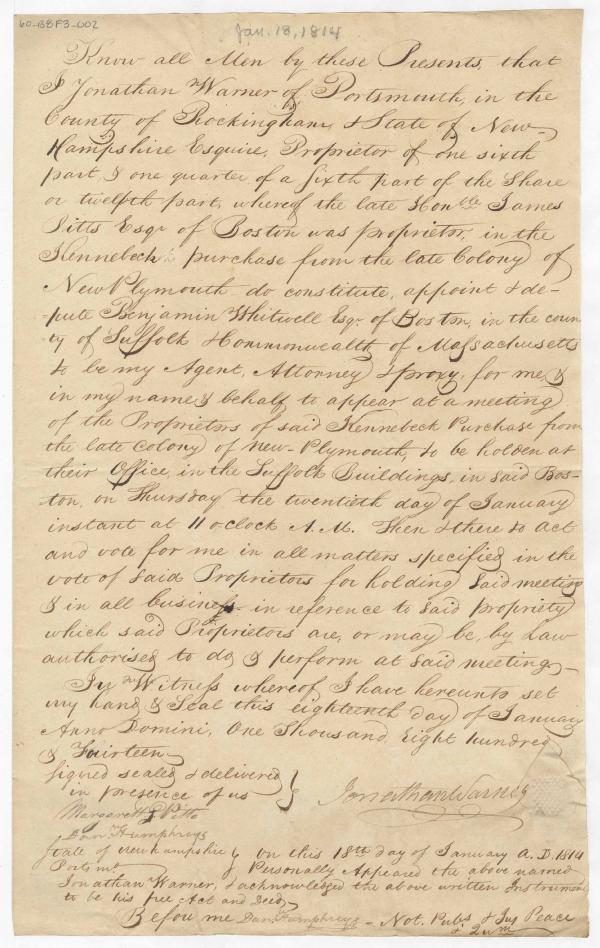 60-B8F3-002
Jan. 18, 1814
Know all Men by these Presents, that
I Jonathan Warner of Portsmouth, in the
County of Rockingham, & State of New-
Hampshire Esquire, Proprietor of one sixth
part, & one quarter of a sixth part of the Share
or twelfth part, whereof the late Honble James
Pitts Esqr of Boston was proprietor, in the
Kennebeck purchase from the late Colony of
New Plymouth do constitute, appoint & de-
pute Benjamin Whitwell Esqr of Boston, in the coun
ty of Suffolk & Commonwealth of Massachusetts
to be my Agent, Attorney & proxy, for me, &
in my name & behalf to appear at a meeting
of the Proprietors of said Kennebeck Purchase from
the late Colony of New-Plymouth, to be holden at
their Office, in the Suffolk Buildings, in said Bos-
ton, on Thursday the twentieth day of January
instant at 11 oclock A.M. Then & there to act
and vote for me in all matters specified in the
vote of said Proprietors for holding said meeting
& in all business in reference to said propriety
which said Proprietors are, or may be, by Law
authorised to do, & perform at said meeting-
In Witness whereof I have hereunto set
my hand & Seal this eighteenth day of January
Anno Domini, One Thousand Eight hundred
& Fourteen
signed sealed & delivered
in presence of us
Jonathan Warner
Margarett Pitts
Danl Humphreys
State of New Hampshire
Portsmo
on this 18th day of January A.D. 1814
Personally Appeared the above named
Jonathan Warner, & acknowledged the above written Instrument
to be his free Act and Deed,
Before me Danl Humphreys - Not. Pub. & Jus Peace
& Qum